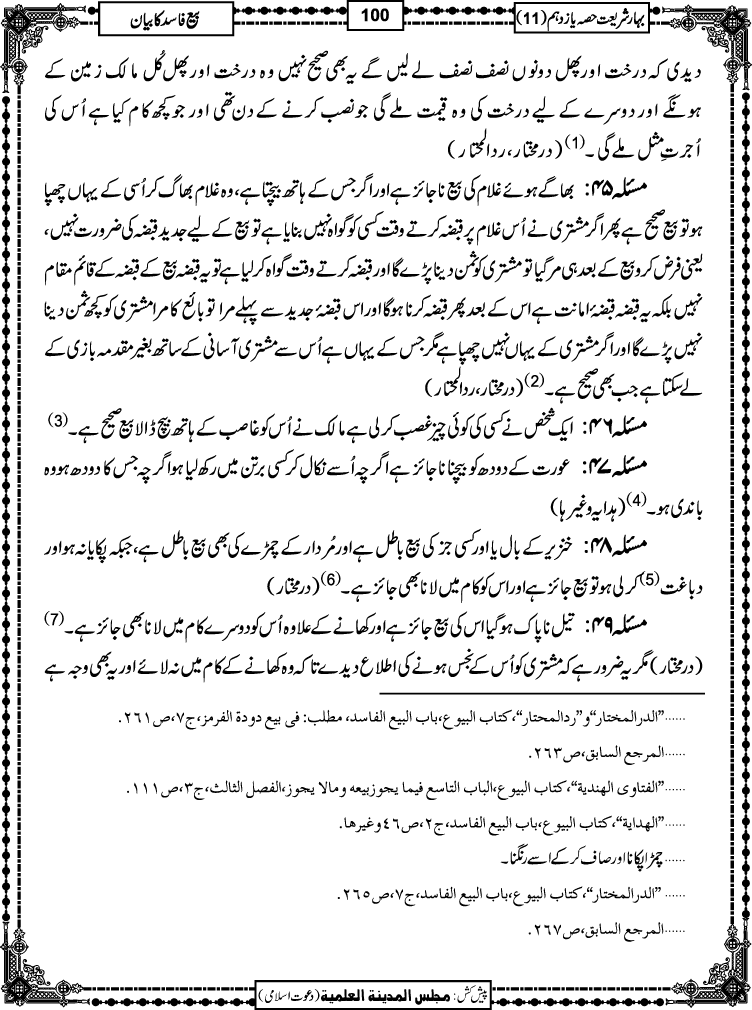 بہارشریعت حصہ یازدہم (11)
100
بیع فاسد کا بیان
دیدی کہ درخت اور پھل دونوں نصف نصف لے لیں گے یہ بھی صحیح نہیں وہ درخت اور پھل کُل مالک زمین کے
ہونگے اور دوسرے کے لیے درخت کی وہ قیمت ملے گی جو نصب کرنے کے دن تھی اور جو کچھ کام کیا ہے اُس کی
اُجرتِ مثل ملے گی۔(1) (درمختار، ردالمحتار)
مسئلہ ۴۵: بھاگے ہوئے غلام کی بیع ناجائز ہے اور اگر جس کے ہاتھ بیچتا ہے، وہ غلام بھاگ کر اُسی کے یہاں چھپا
ہو تو بیع صحیح ہے پھر اگر مشتری نے اُس غلام پر قبضہ کرتے وقت کسی کو گواہ نہیں بنایا ہے تو بیع کے لیے جدید قبضہ کی ضرورت نہیں،
یعنی فرض کرو بیع کے بعد ہی مر گیا تو مشتری کو ثمن دینا پڑے گا اور قبضہ کرتے وقت گواہ کر لیا ہے تو یہ قبضہ بیع کے قبضہ کے قائم مقام
نہیں بلکہ یہ قبضہ قبضۂ امانت ہے اس کے بعد پھر قبضہ کرنا ہوگا اور اس قبضۂ جدید سے پہلے مرا تو بائع کا مرا مشتری کو کچھ ثمن دینا
نہیں پڑے گا اور اگر مشتری کے یہاں نہیں چھپا ہے مگر جس کے یہاں ہے اُس سے مشتری آسانی کے ساتھ بغیر مقدمہ بازی کے
لے سکتا ہے جب بھی صحیح ہے۔(2) (درمختار، ردالمحتار)
مسئلہ ۴۶: ایک شخص نے کسی کی کوئی چیز غصب کر لی ہے مالک نے اُس کو غاصب کے ہاتھ بیچ ڈالا بیع صحیح ہے۔(3)
مسئلہ ۴۷: عورت کے دودھ کو بیچنا ناجائز ہے اگرچہ اُسے نکال کر کسی برتن میں رکھ لیا ہو اگرچہ جس کا دودھ ہو وہ
باندی ہو۔(4) (ہدایہ وغیرہا)
مسئلہ ۴۸: خنزیر کے بال یا اور کسی جز کی بیع باطل ہے اور مُردار کے چمڑے کی بھی بیع باطل ہے، جبکہ پکایا نہ ہو اور
دباغت(5) کر لی ہو تو بیع جائز ہے اور اس کو کام میں لانا بھی جائز ہے۔(6) (درمختار)
مسئلہ ۴۹: تیل ناپاک ہوگیا اس کی بیع جائز ہے اور کھانے کے علاوہ اُس کو دوسرے کام میں لانا بھی جائز ہے۔(7)
(درمختار) مگر یہ ضرور ہے کہ مشتری کو اُس کے نجس ہونے کی اطلاع دیدے تاکہ وہ کھانے کے کام میں نہ لائے اور یہ بھی وجہ ہے
......"الدرالمختار"و"ردالمحتار"،کتاب البیوع،باب البیع الفاسد، مطلب: فی بیع دودة الفرمز،ج٧،ص٢٦١.
......المرجع السابق،ص٢٦٣.
......"الفتاوی الهندیة"،کتاب البیوع،الباب التاسع فیما یجوزبیعه ومالا یجوز،الفصل الثالث،ج٣،ص١١١.
......"الهدایة"،کتاب البیوع،باب البیع الفاسد،ج٢،ص٤٦وغیرها.
......چمڑا پکانا اور صاف کر کے اسے رنگنا۔
......"الدرالمختار"،کتاب البیوع،باب البیع الفاسد،ج٧،ص٢٦٥.
......المرجع السابق،ص٢٦٧.
پیش کش: مجلس المدینة العلمیة (دعوت اسلامی)